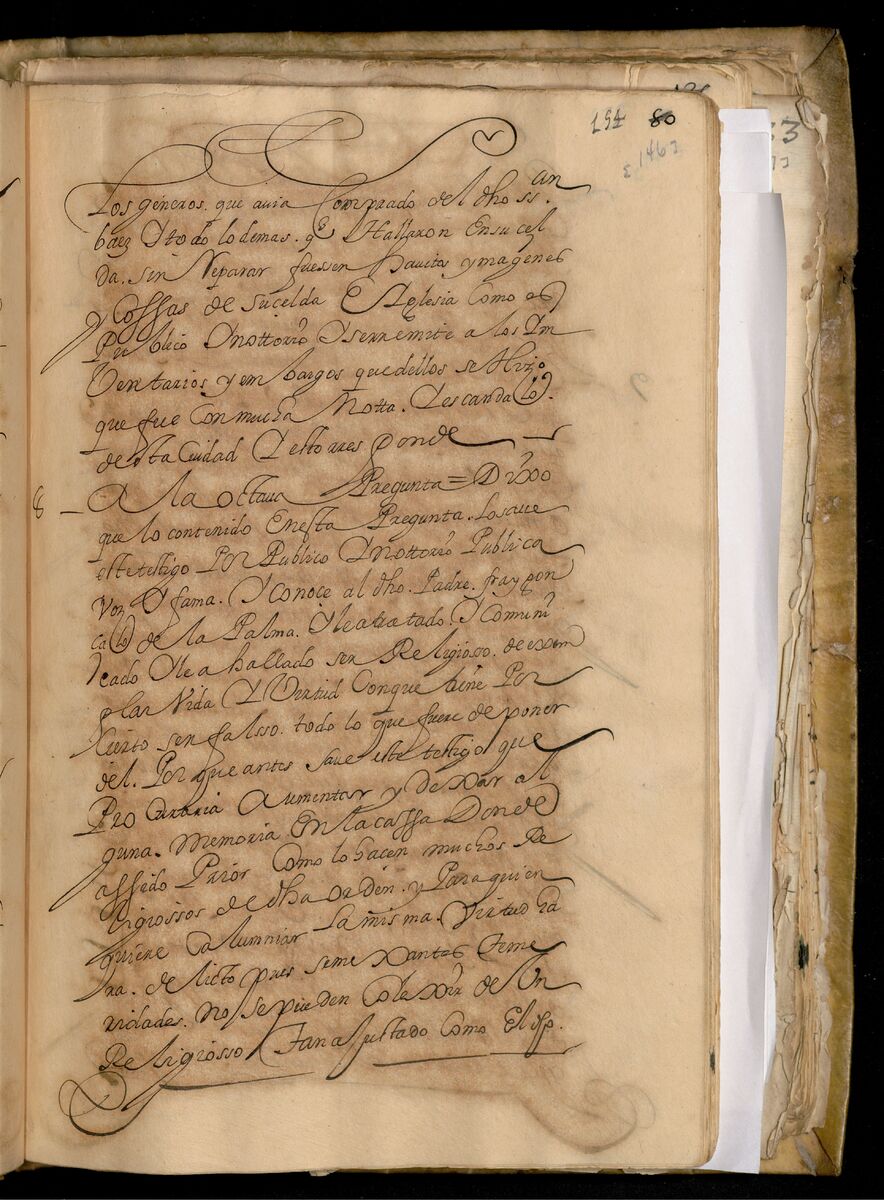 154 80
E 1463
Los géneros. que auia Comprado del dho ssan.
baez Y todo lo demas. qe Hallaron En su cel
da. sin Reparar fuessen hauitos ymagenes
y Cossas de su celda E Yglesia Como es
Publico Y nottorio Y se rremite a los Ym
Ventarios y embargos que dellos se Hizo
que fue Con mucha Notta. Y escandalo.
desta Ciudad Y esto rresponde
8 - A la octaua Pregunta = Dixo
que lo contenido En esta Pregunta. Lo saue
este testigo Por Publico Y nottorio Publica
Voz Y fama. Y Conoce al dho. Padre. fray gon
calo de la Palma. Y le a tratado. Y comuni
cado Y le a hallado ser Religiosso. de exem
plar Vida Y Virtud Con que tiene Por
Cierto ser falsso. todo lo que fuere deponer
del. Por que antes saue este testigo que
Procuraria Aumentar y dexar al
guna. Memoria En la cassa Donde
a ssido Prior Como lo hacen muchos Re
ligiossos de dha orden. y Para quien
quiere Calumniar La misma. Virtud Ea
ra. delicto pues semexantes teme
ridades. no se pueden Colexir de Un
Religiosso Tan ajustado Como El dho.